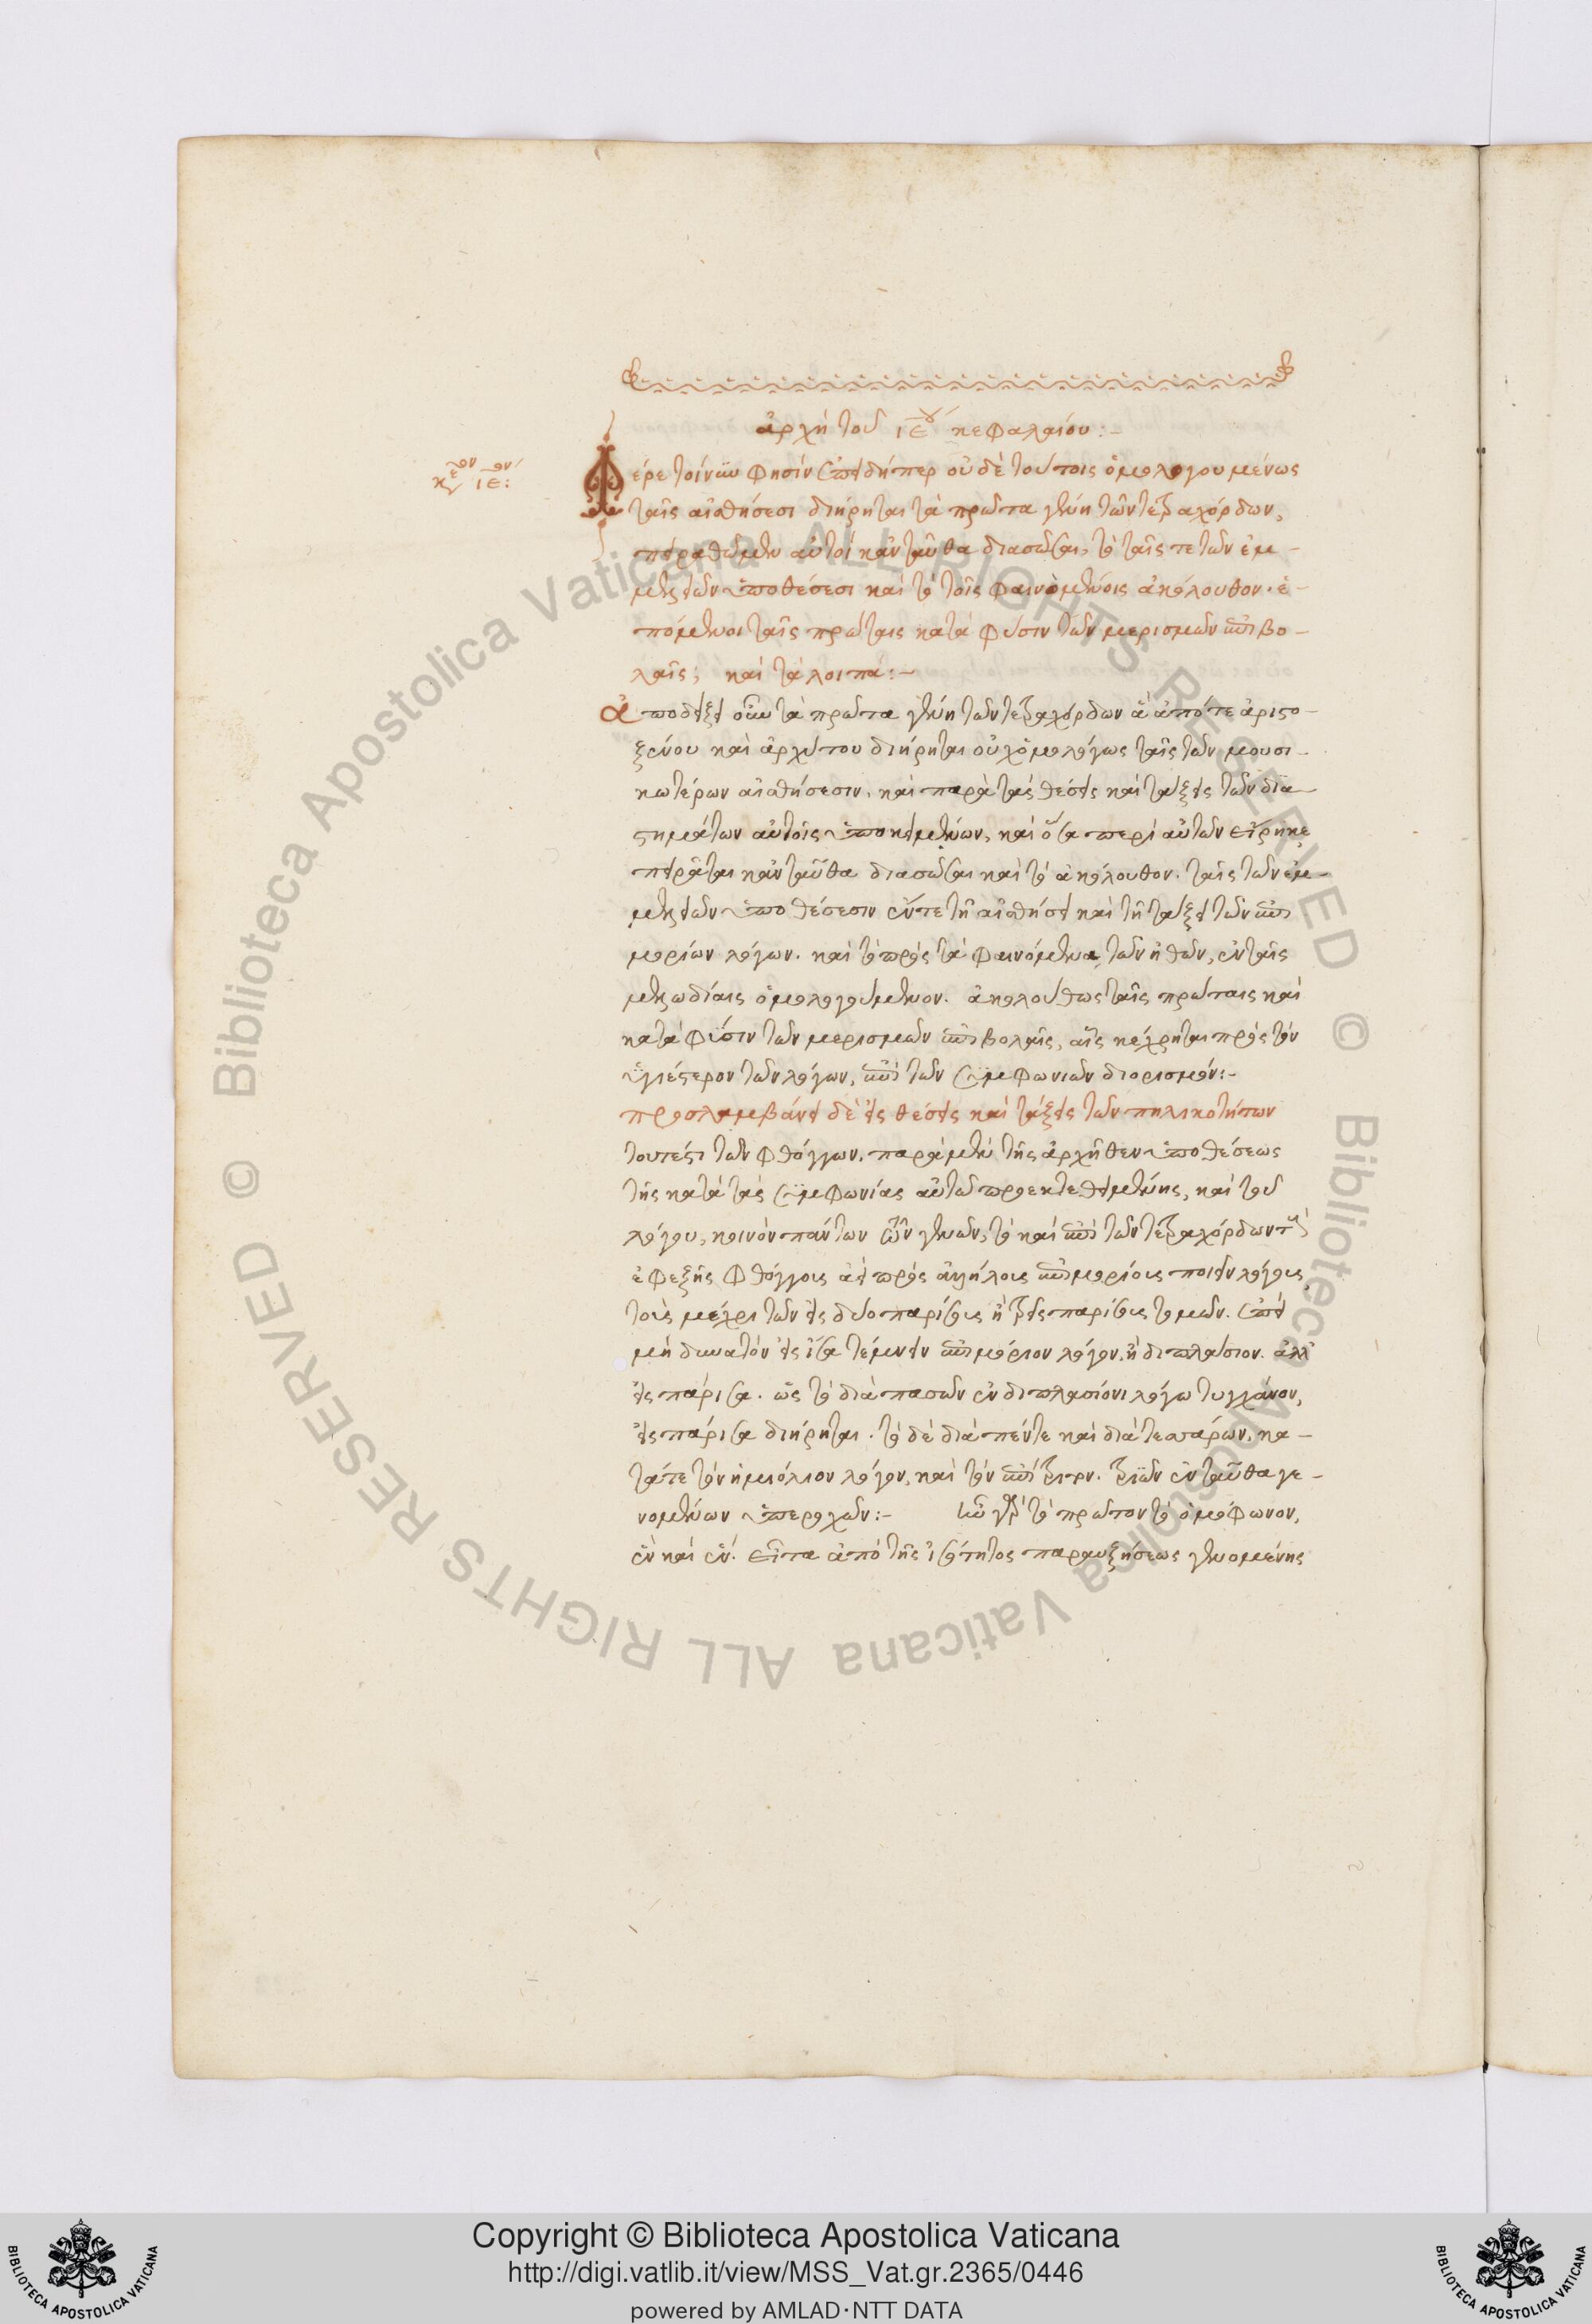 ἀρχὴ τοῦ ιε̅ου κεφαλαίου:-
κεον ιε̅ον:
Φέρε τοίνυν φησὶν ἐπειδήπερ οὐδὲ τούτοις ὁμολογουμένως
ταῖς αἰσθήσεσι διήρηται τὰ πρῶτα γένη τῶν τετραχόρδων,
πειραθῶμεν αὐτοὶ κἀνταῦθα διασῶσαι, τὸ ταῖς τε τῶν ἐμ-
μελειῶν ὑποθέσεσι καὶ τὸ τοῖς φαινομένοις ἀκόλουθον. ἑ-
πόμενοι ταῖς πρώταις κατὰ φύσιν τῶν μερισμῶν ἐπιβο-
λαῖς; καὶ τὰ λοιπά:-
ἀποδείξει οὖν τὰ πρῶτα γένη τῶν τετραχόρδων ἃ ἀπό τε ἀριστο-
ξένου καὶ ἀρχύτου διήρηται οὐχ ὁμολόγως ταῖς τῶν μουσι-
κωτέρων αἰσθήσεσιν. καὶ παρὰ τὰς θέσεις καὶ τάξεις τῶν δια-
στημάτων αὐτοῖς ὑποκειμένων, καὶ ὅσα περὶ αὐτῶν εἴρηκε,
πειρᾶται κἀνταῦθα διασῶσαι καὶ τὸ ἀκόλουθον. ταῖς τῶν ἐμ-
μελειῶν ὑποθέσεσιν ἔν τε τῇ αἰσθήσει καὶ τῇ τάξει τῶν ἐπι
μορίων λόγων. καὶ τὸ πρὸς τὰ φαινόμενα, τῶν ἠθῶν, ἐν ταῖς
μελωδίαις ὁμολογούμενον. ἀκολούθως ταῖς πρώταις καὶ
κατὰ φύσιν τῶν μερισμῶν ἐπιβολαῖς, αἷς κέχρηται πρὸς τὸν
ὑγιέστερον τῶν λόγων, ἐπὶ τῶν συμφωνιῶν διορισμόν:-
προσλαμβάνει δὲ εἰς θέσεις καὶ τάξεις τῶν πηλικοτήτων
τουτέστι τῶν φθόγγων. παρὰ μὲν τῆς ἀρχῆθεν ὑποθέσεως
τῆς κατὰ τὰς συμφωνίας αὐτῶ προεκτεθειμένης, καὶ τοῦ
λόγου, κοινὸν πάντων ὂν γενῶν, τὸ καὶ ἐπὶ τῶν τετραχόρδων τοὺς
ἐφεξῆς φθόγγους ἀεὶ πρὸς ἀλλήλους ἐπιμορίους ποιεῖν λόγους,
τοὺς μέχρι τῶν εἰς δύο παρίσους ἢ τρεῖς παρίσους τομῶν. ἐπεὶ
μὴ δυνατὸν εἰς ἴσα τέμνειν ἐπιμόριον λόγον, ἢ διπλάσιον. ἀλλ'
εἰς πάρισα. ὡς τὸ διὰ πασῶν ἐν διπλασίονι λόγω τυγχάνον,
εἰς πάρισα διήρηται. τὸ δὲ διὰ πέντε καὶ διὰ τεσσάρων, κα-
τά τε τὸν ἡμιόλιον λόγον, καὶ τὸν ἐπίτριτον. τριῶν ἐνταῦθα γε-
νομένων ὑπεροχῶν:- ἦν γὰρ τὸ πρῶτον τὸ ὁμόφωνον,
ἓν καὶ ἕν. εἶτα ἀπὸ τῆς ἰσότητος παραυξήσεως γενομένης
Copyright © Biblioteca Apostolica Vaticana
http://digi.vatlib.it/view/MSS_Vat.gr.2365/0446
powered by AMLAD·NTT DATA
BIBLIOTECA APOSTOLICA VATICANA
BIBLIOTECA APOSTOLICA VATICANA
© Biblioteca Apostolica Vaticana ALL RIGHTS RESERVED
© Biblioteca Apostolica Vaticana ALL RIGHTS RESERVED